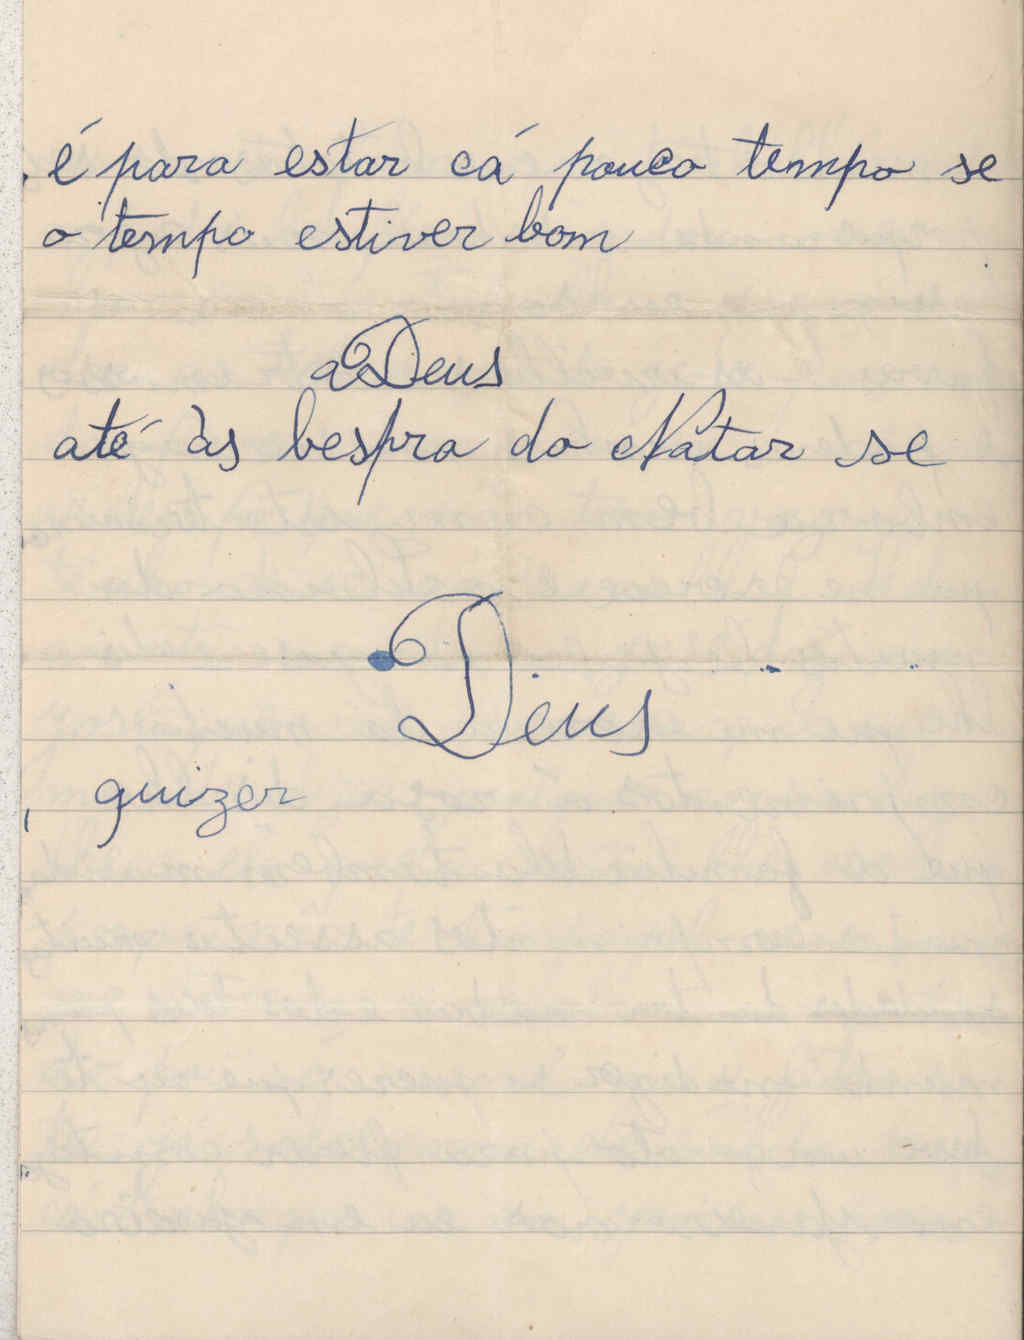 é para estar cá pouco tempo se
o tempo estiver bom
aDeus
até às bespra do Natar se
Deus
quizer